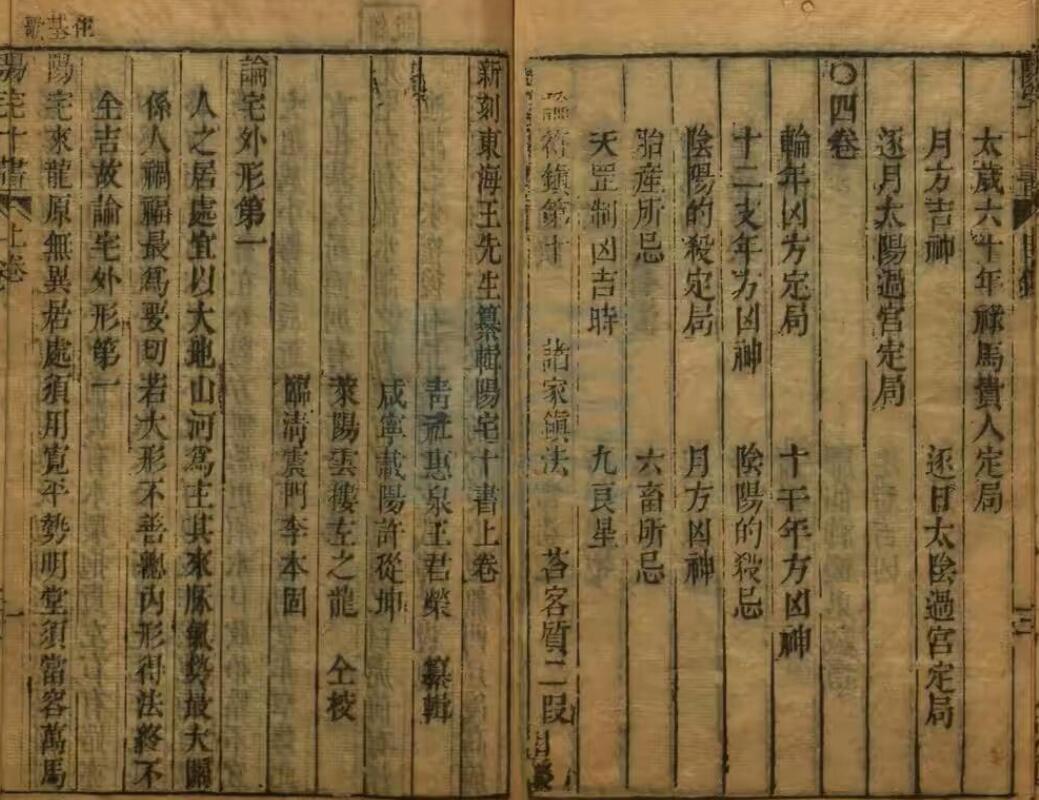 太歲六十年祿馬貴人定局
月方吉神　逐日太陰過宮定局
逐月太陽過宮定局
〇四卷
輪年凶方定局　十干年方凶神
十二支年方凶神　陰陽的殺忌
陰陽的殺定局　月方凶神
胎産所忌　六畜所忌
天罡制凶吉時　九良星
論符鎮第十　諸家鎮法　荅客質二段
新刻東海王先生纂輯陽宅十書上卷
惠泉王君榮　纂輯
咸寧戴陽許從坤
萊陽雲樓左之龍　仝校
臨清震門李本固
論宅外形第一
人之居處宜以大地山河爲主其來脉氣勢最大關
係人禍福最爲要切若大形不善總內形得法終不
全吉故論宅外形第一
陽宅來龍原無異居處須用寬平勢明堂須當容萬馬
陽宅十書　上卷　一